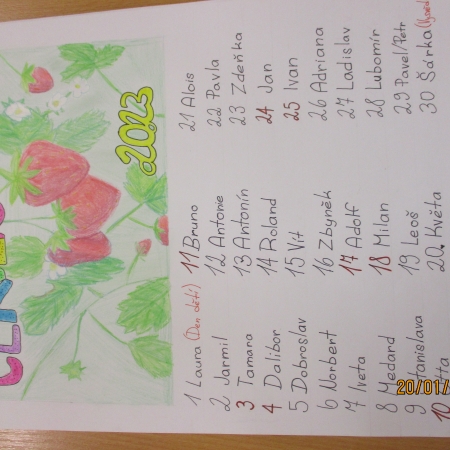 2023
1 Laura (Den dětí)
2 Jarmil
3 Tamara
4 Dalibor
5 Dobroslav
6 Norbert
7 Iveta
8 Medard
9 Stanislava
10
11 Bruno
12 Antonie
13 Antonín
14 Roland
15 Vít
16 Zbyněk
17 Adolf
18 Milan
19 Leoš
20. Květa
21 Alois
22 Pavla
23 Zdeňka
24 Jan
25 Ivan
26 Adriana
27 Ladislav
28 Lubomír
29 Pavel/Petr
30 Šárka
20/01/